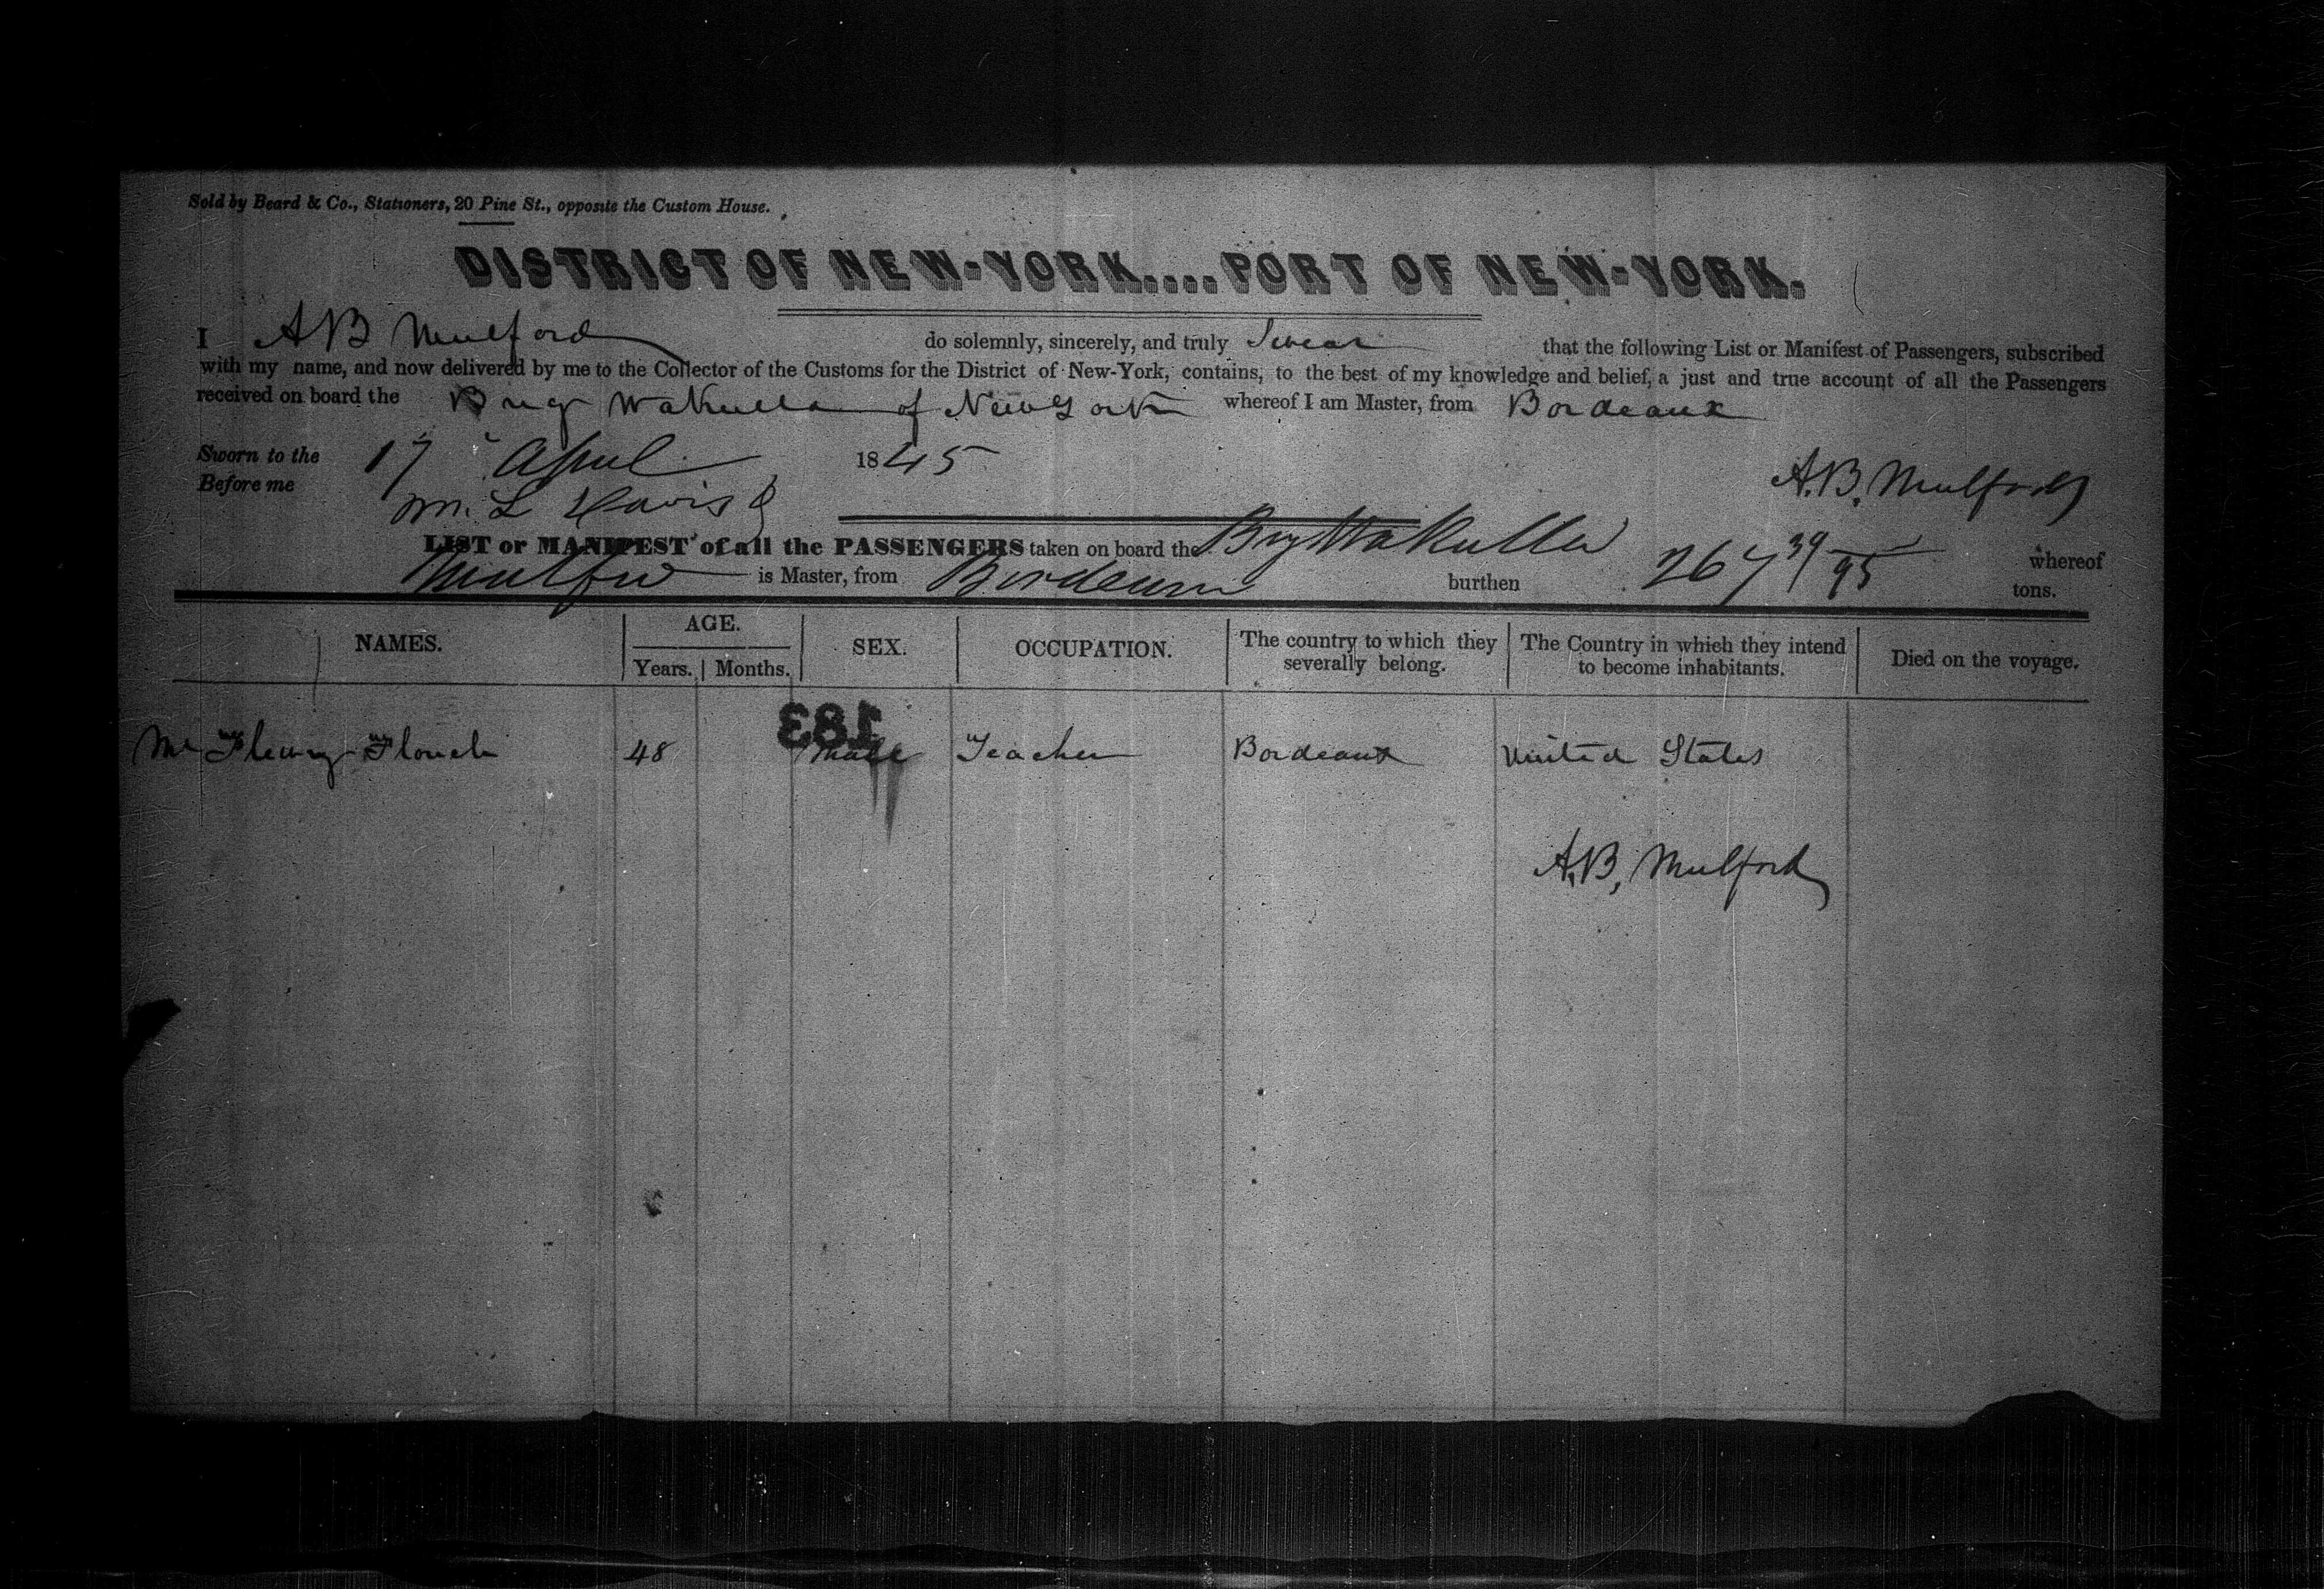 Sold by Beard & Co., Stationers, 20 Pine St., opposite the Custom House.
DISTRICT OF NEW-YORK....PORT OF NEW-YORK.
I A B Mulford do solemnly, sincerely, and truly Swear that the following List or Manifest of Passengers, subscribed
with my name, and now delivered by me to the Collector of the Customs for the District of New-York, contains, to the best of my knowledge and belief, a just and true account of all the Passengers
received on board the Brig Wakulla of New York whereof I am Master, from Bordeaux
Sworn to the 17 April 1845
Before me M. L Davis
A. B. Mulford
LIST or MANIFEST of all the PASSENGERS taken on board the Brig Wakulla whereof
Mulford is Master, from Bordeaux burthen 267 39/95 tons.
NAMES. AGE. SEX. OCCUPATION. The country to which they severally belong. The Country in which they intend to become inhabitants. Died on the voyage.
Years. Months.
183
Mr Fleury 48 male Teacher Bordeaux United States
A. B. Mulford